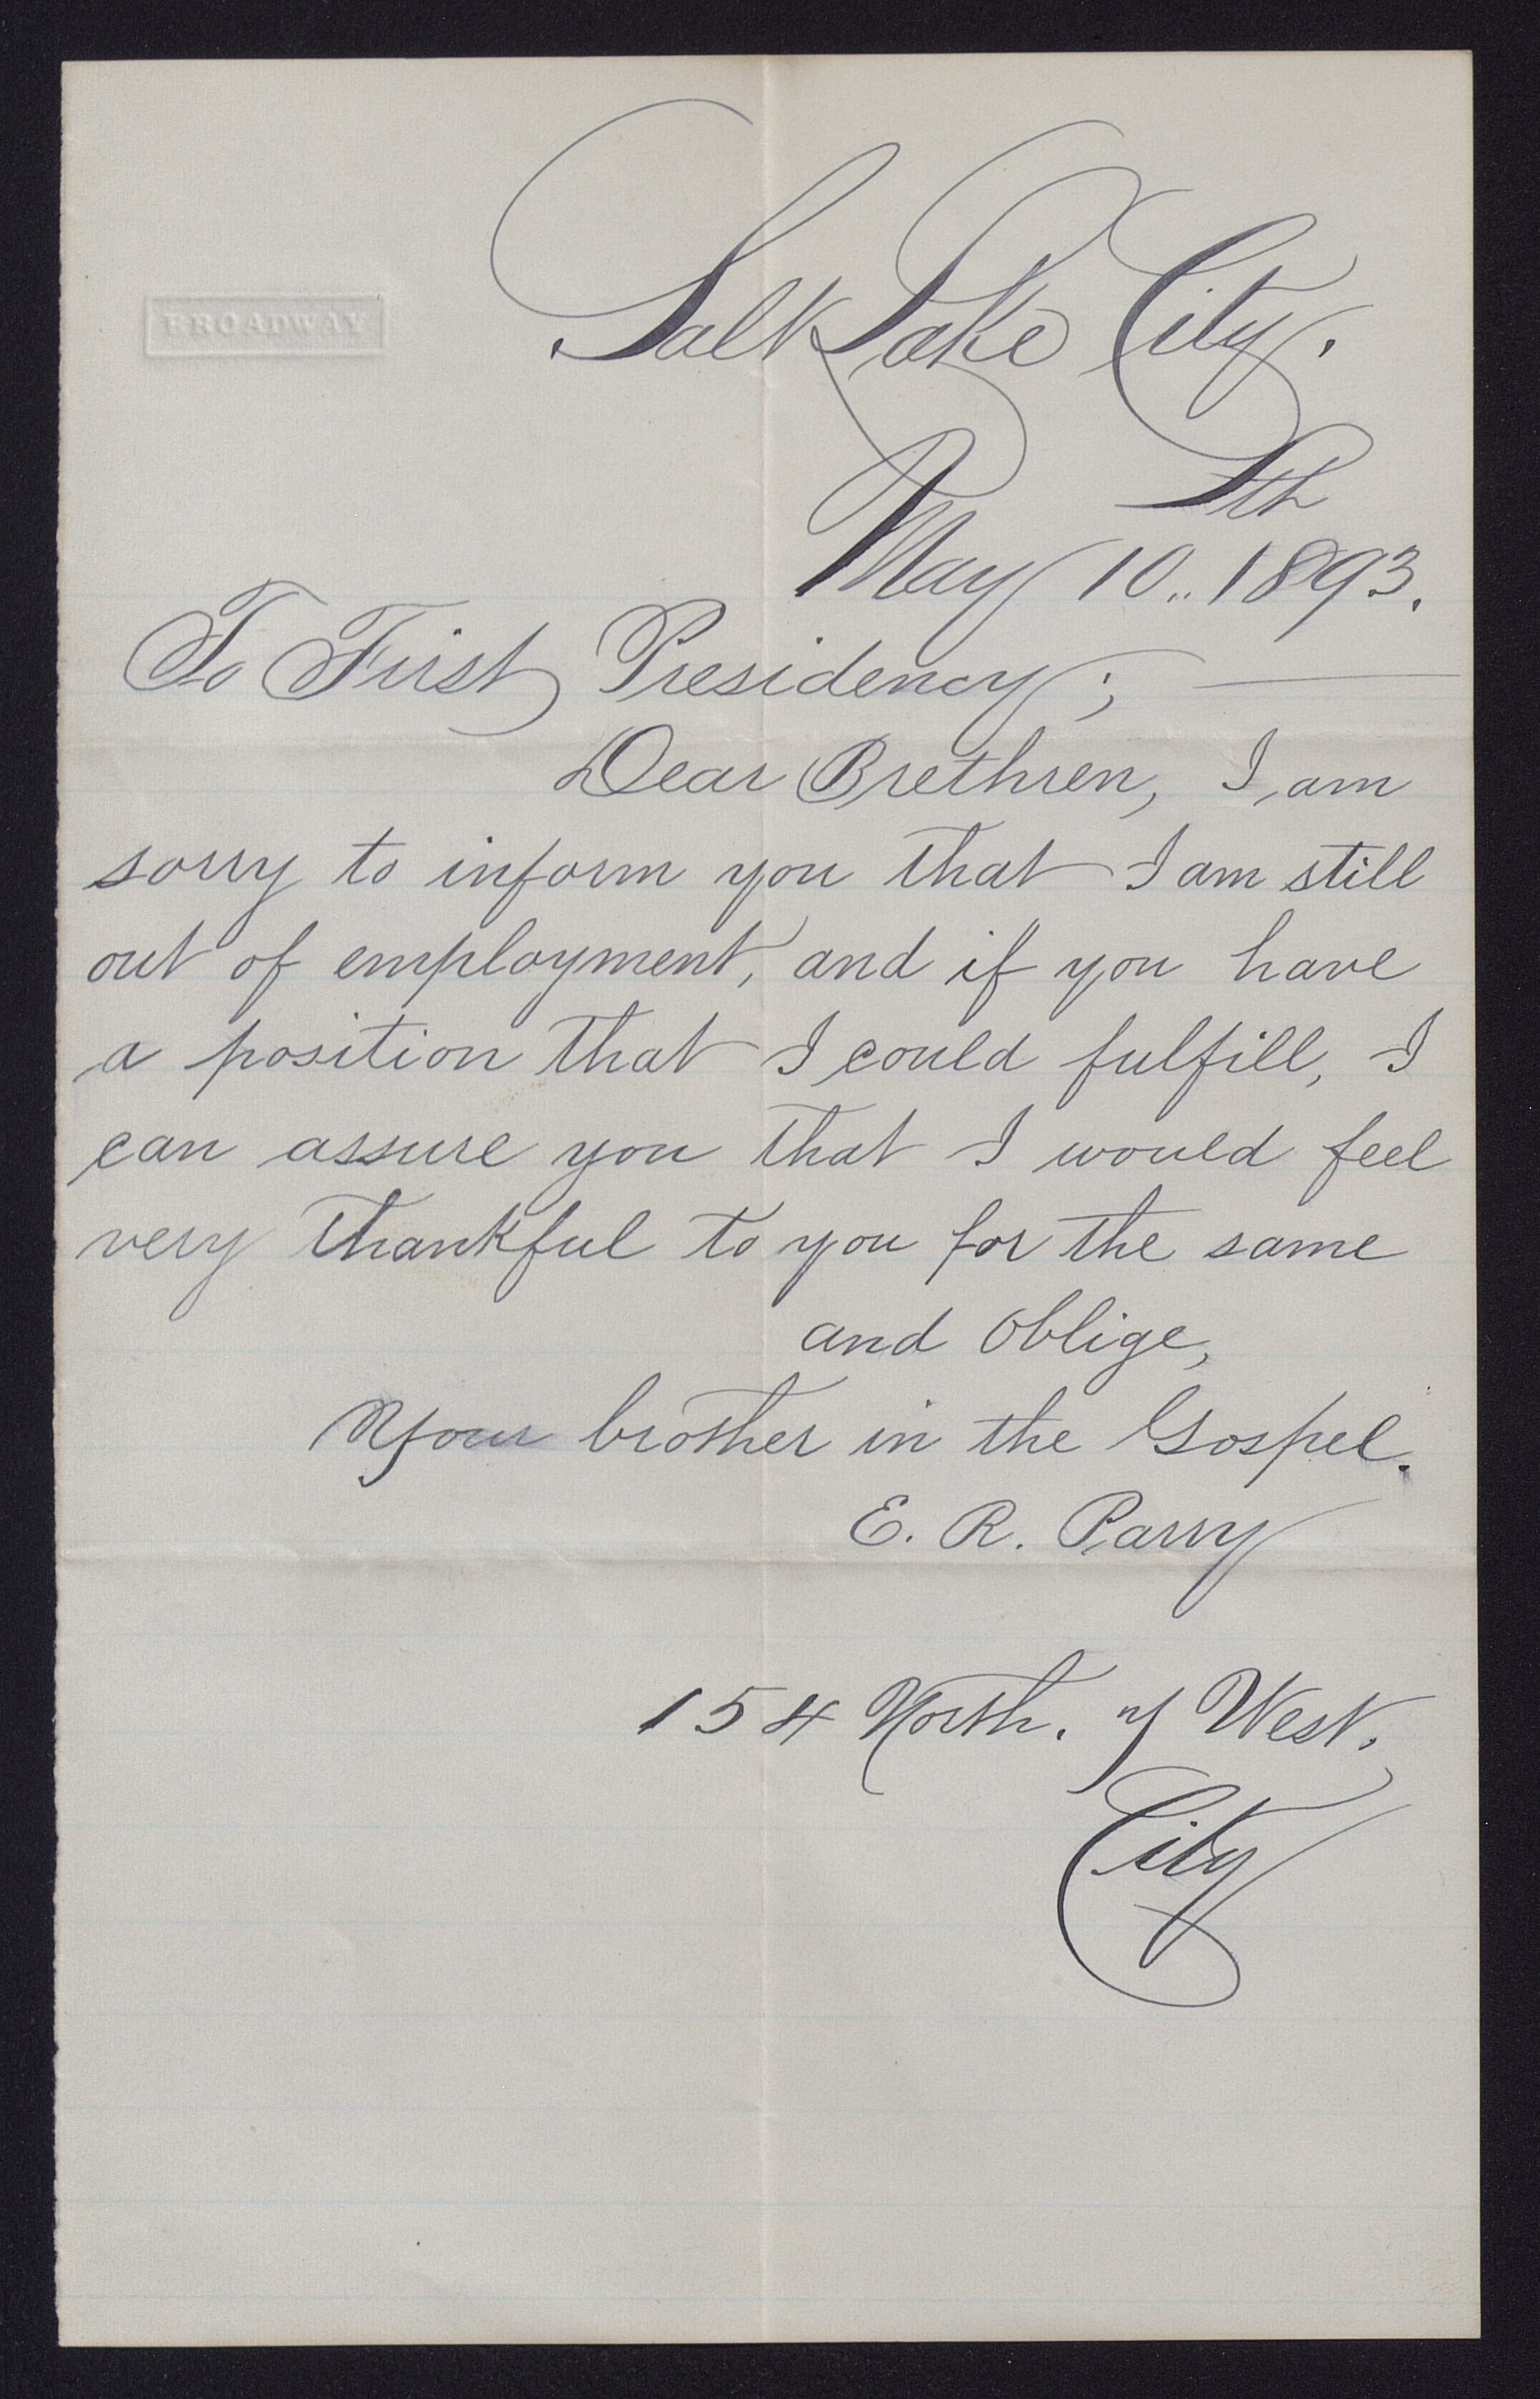 BROADWAY
Salt Lake City.
May 10th.. 1893.
To First Presidency;
Dear Brethren, I am
sorry to inform you that I am still
out of employment, and if you have
a position that I could fulfill, I
can assure you that I would feel
very thankful to you for the same
and Oblige,
Your brother in the Gospel.
E. R. Parry
154 North. 7 West.
City